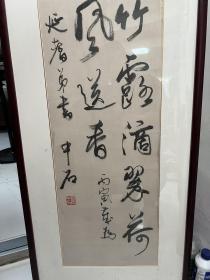 竹露滴翠荷
风送香
丙寅春为
延奢弟书
中石